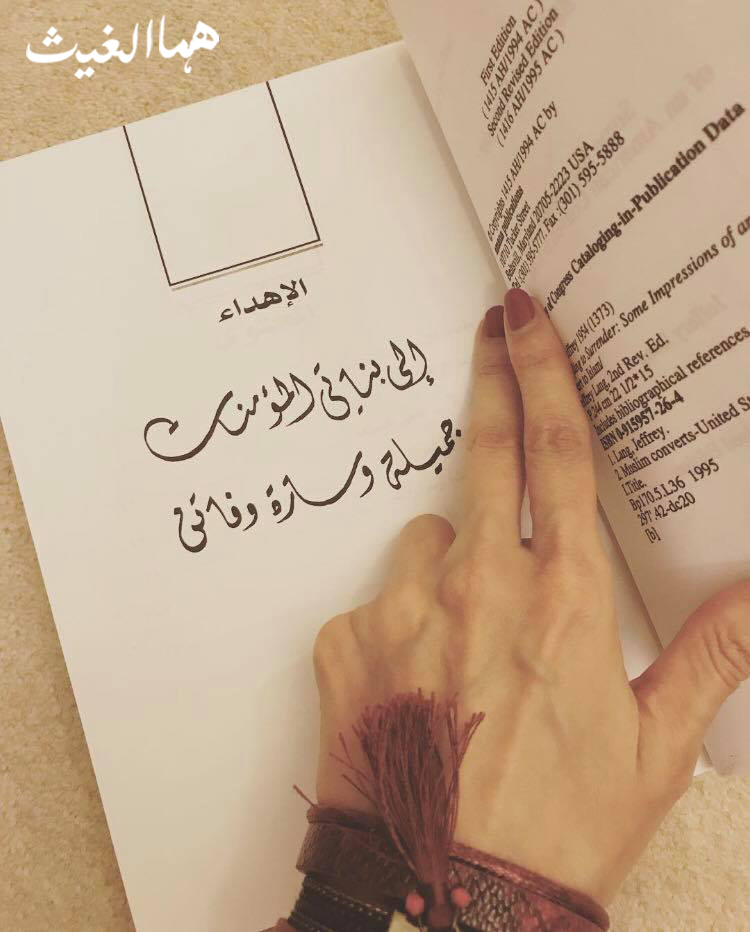 هما الغيث
الإهداء
إلى بنياتي المؤمنات
جميلة وسارة وفاتي
First Edition
(1415 AH/1994 AC)
Second Revised Edition
(1416 AH/1995 AC)
Copyrights 1415 AH/1994 AC by
amana publications
10710 Tucker Street
Beltsville, Maryland 20705-2223 USA
(301) 595-5777, Fax: (301) 595-5888
of Congress Cataloging-in-Publication Data
Jeffrey 1954 (1373)
to Surrender: Some Impressions of an
to Islam/
Jeffrey Lang, 2nd Rev. Ed.
P.244 cm. 22 1/2*15
Includes bibliographical references
ISBN 0-915957-26-4
1. Lang, Jeffrey.
2. Muslim converts-United
I.Title.
Bp170.5.L36 1995
297'.42-dc20
[b]